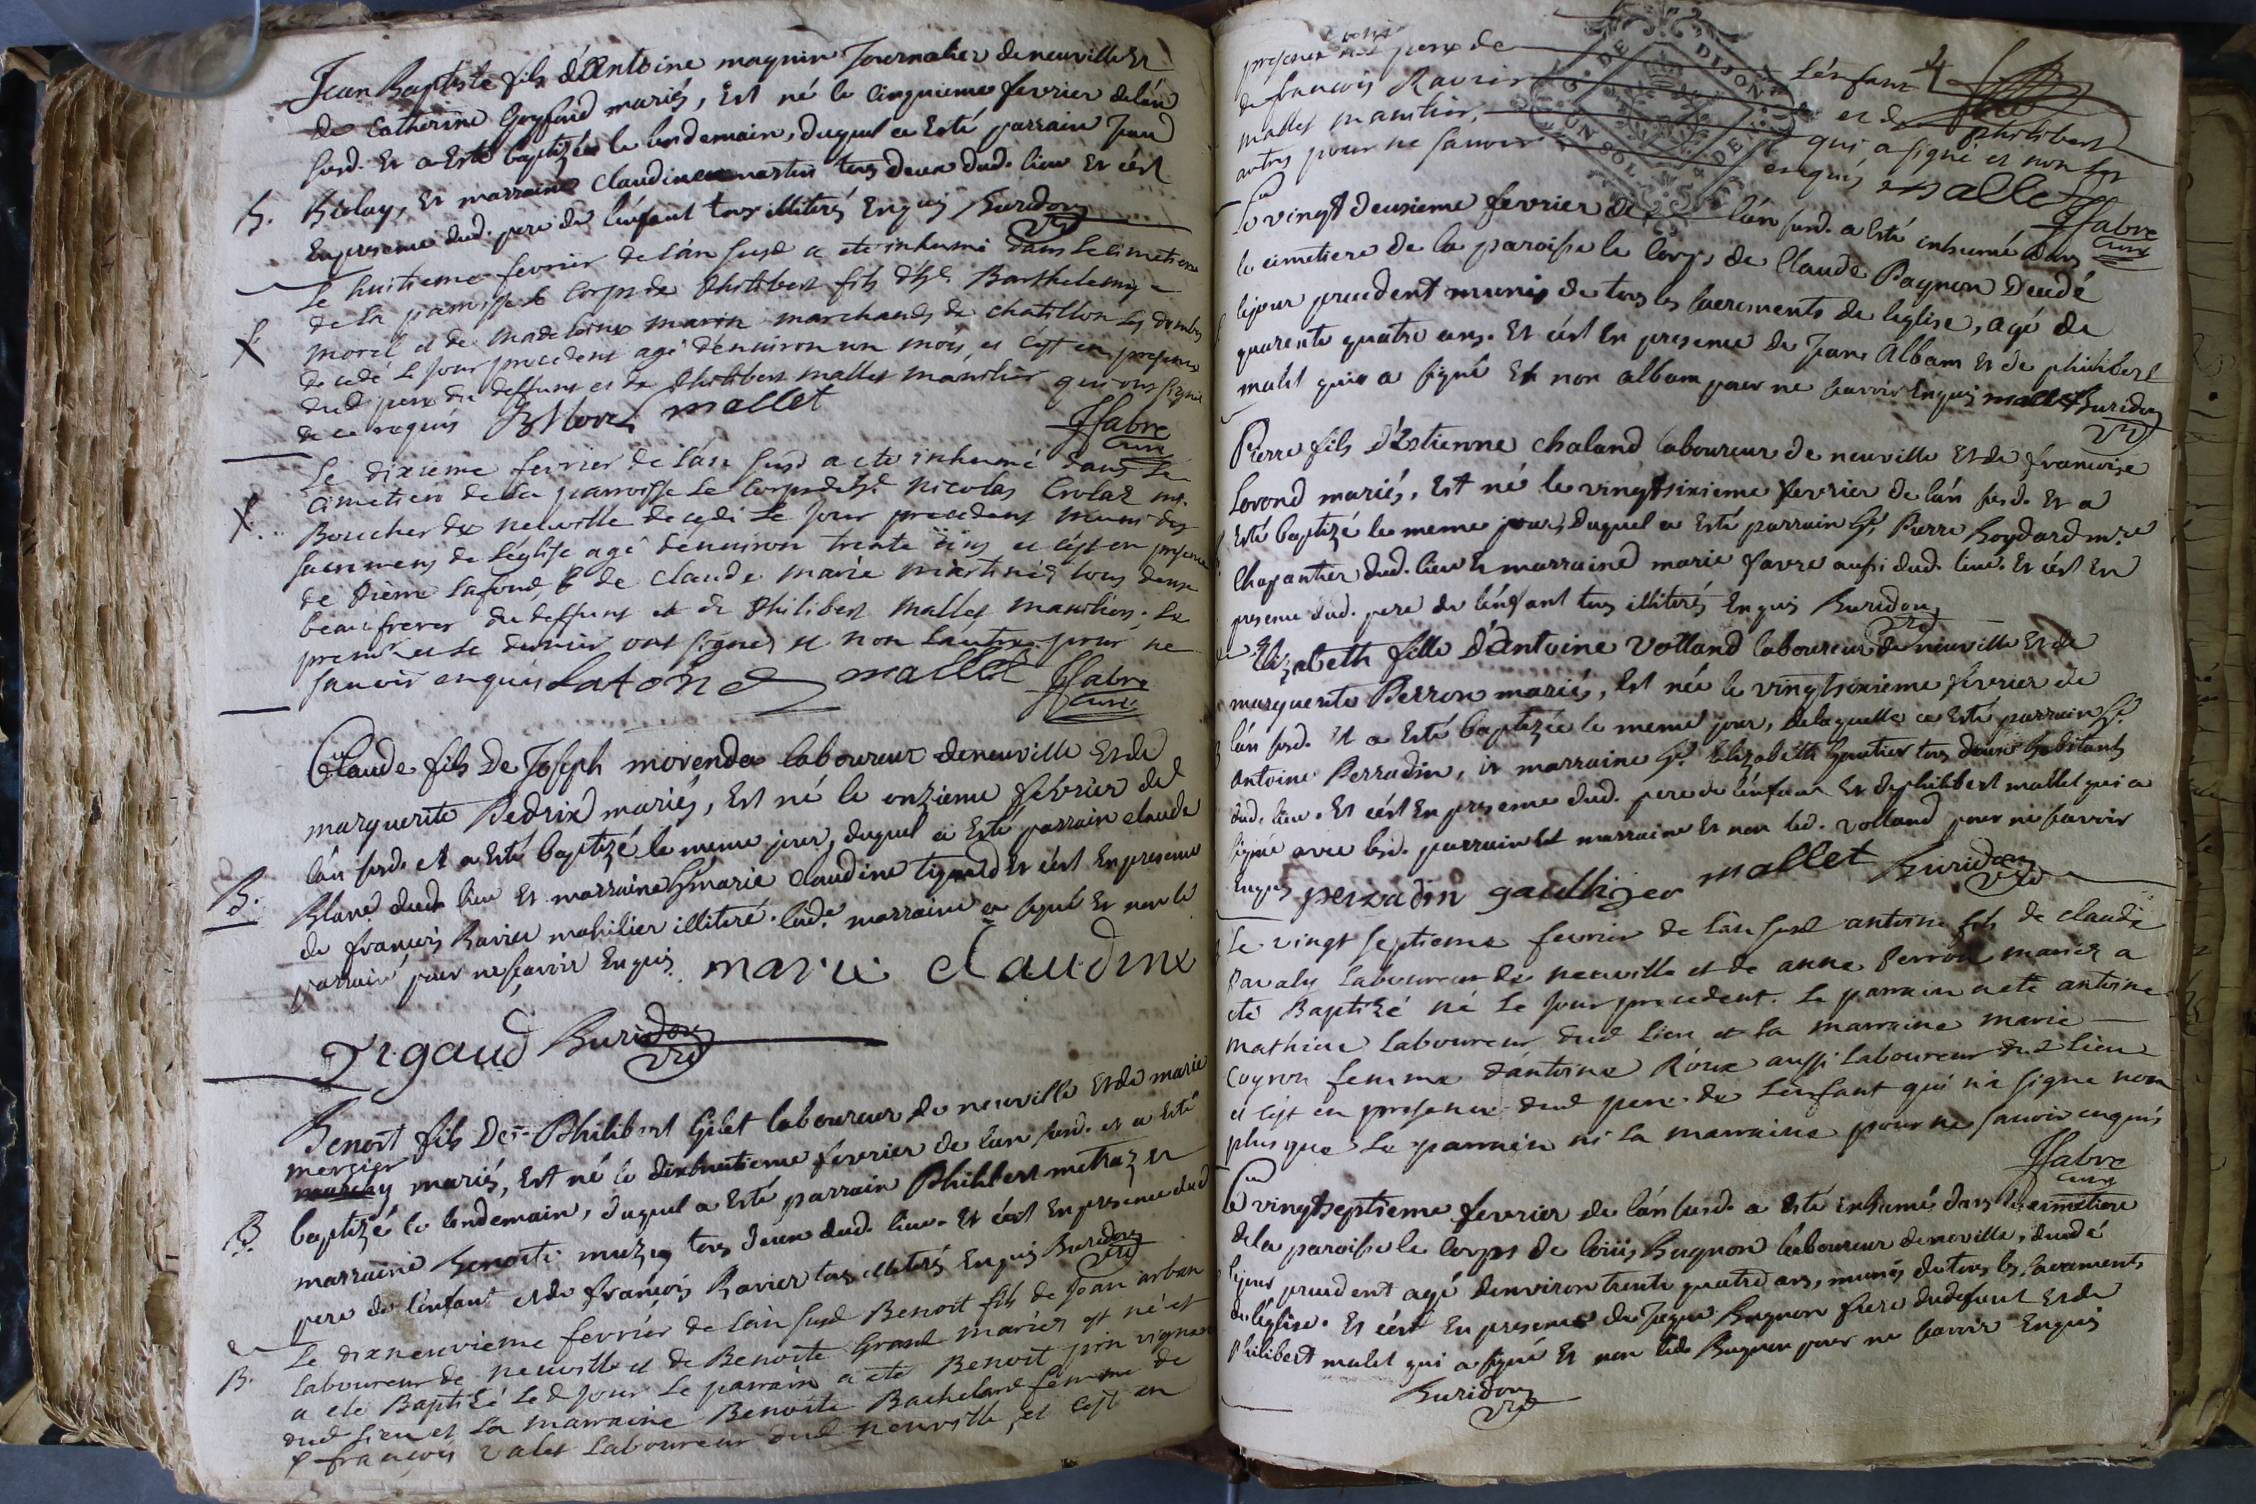 Jean Baptiste fils d'Antoine magnin Journalier de neuville Et
de Catherine Goyffond mariés, Est né le Cinquieme fevrier de l'an
susd. Et a Esté baptizé le lendemain, duquel a Esté parrain Jean
B. Biolay, Et marraine Claudine martin tous deux dud. lieu Et c'est
En presence dud. pere de l'enfant tous illiterés Enquis Buridon
vic
Le huitieme fevrier de l'an susd a ete inhumé dans le cimetiere
de la paroisse le Corps de Philibert fils d'h^e Barthelemy
morel et de Madelaine marin marchands de chatillon les dombes
decedé le jour precedent agé d'environ un mois et c'est en presence
dud pere du deffunt et de Philibert mallet manilier qui ont signé
de ce requis BMorel mallet Jfabre
curé
Le dixieme fevrier de l'an susd a ete inhumé dans le
Cimetiere de la parroisse le Corps de Nicolas Crolaz
Boucher de neuville decedé le jour precedent muni des
sacremens de l'église agé d'environ trente ans et c'est en presence
de Pierre lafond, & de Claude marie martin tous deux
beaufreres du deffunt et de Philibert Mallet manilier; le
premier et le dernier ont signé et non l'autre pour ne
savoir enquis Lafond mallet Jfabre
curé
Claude fils De Joseph morendet laboureur de neuville Et de
marguerite Pedrix mariés, Est né le onzieme février de
l'an susd. et a Esté baptizé le meme jour, duquel a Esté parrain claude
B. Blanc dud. lieu Et marraine marie claudine tigaud Et c'est En presence
de françois Ravier mahilier illiteré. lad. marraine a signé Et non le
parrain pour ne sçavoir Enquis. marie claudine
Tigaud Buridon
vic
Benoit fils De Philibert Gilet laboureur de neuville Et de marie
mercier
mariés, Est né le dixhuitieme fevrier de l'an susd. et a Esté
B. baptizé le lendemain, duquel a Esté parrain Philibert metraz Et
marraine Benoite muzy tous deux dud. lieu. Et c'est En presence dud
pere de l'enfant et de françois Ravier tous illiterés Enquis Buridon
vic
Le dixneuvieme fevrier de l'an susd Benoit fils de Jean arban
B. laboureur de neuville et de Benoite Grand mariés est né et
a eté Baptizé led jour le parrain a ete Benoit vigneron
dud lieu et la marraine Benoite Bachelard femme de
françois valet Laboureur dud neuville, et c'est en
presence dud pere de l'enfant
de françois Ravier et de philibert
mallet manilier, qui a signé et non les
autres pour ne savoir enquis mallet Jfabre
curé
Le vingt deusieme fevrier de l'an susd. a Esté inhumé dans
le cimetiere de la paroisse le Corps de Claude Pagnon Decedé
le jour precedent munis de tous les sacrements de l'eglise, agé de
quarente quatre ans. Et c'est En presence de Jean Alban et de philibert
malet qui a signé Et non alban pour ne sçavoir Enquis mallet Buridon
vic
Pierre fils d'Estienne chaland laboureur de neuville Et de francoise
Lorond mariés, Est né le vingtsixieme fevrier de l'an susd. Et a
Esté baptizé le meme jour, duquel a Esté parrain S^r Pierre Goydard m.re
Chapantier dud. lieu Et marraine marie favre aussi dud. lieu. Et c'est En
presence dud. pere de l'enfant tous illiterés Enquis Buridon
vic
Elizabeth fille d'Antoine Volland laboureur de neuville Et de
marguerite Perron mariés, Est née le vingtsixieme fevrier de
l'an susd. Et a Esté baptizée le meme jour, de laquelle a Esté parrain S^r
Antoine Perradin, et marraine Elizabeth Gautier tous deux habitants
dud. lieu. Et c'est En presence dud. pere de l'enfant Et de philibert mallet qui a
signé avec lesd. parrain et marraine Et non led. volland pour ne sçavoir
Enquis perradin gaulthier mallet Buridon
vic
Le vingt septieme fevrier de l'an susd antoine fils de claude
Pavaly laboureur de neuville et de anne Perron mariés a
ete Baptizé né le jour precedent. Le parrain a ete antoine
Mathieu laboureur dud lieu et la marraine marie
Coyron femme d'antoine Roux aussi laboureur dud lieu
et c'est en presence dud pere de l'enfant qui n'a signé non
plus que le parrain ni la marraine pour ne savoir enquis
Jfabre
curé
Le vingtseptieme fevrier de l'an susd. a Esté inhumé dans le cimetiere
de la paroisse le Corps de loüis Bugnon laboureur de neuville, decedé
le jour precedent agé d'environ trente quatre ans, munis de tous les sacrements
de l'église. Et c'est En presence de Jaque Bugnon frere dud defunt Et de
Philibert malet qui a signé Et non led. Bugnon pour ne sçavoir Enquis
Buridon
vic